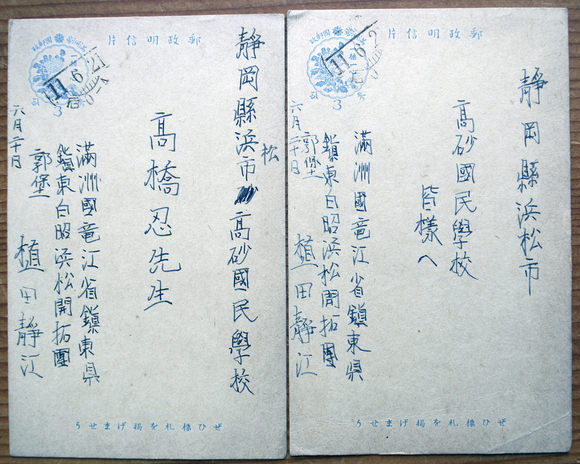 郵政明信片
11.6.21
3
静岡縣浜松市高砂國民學校
高橋忍先生
満洲國竜江省鎮東県
鎮東白昭浜松開拓團
郭堡
植田靜江
六月二十日
ぜひ標札を掲げませう
郵政明信片
3
静岡縣浜松市
高砂國民學校
皆様へ
満洲國竜江省鎮東県
鎮東白昭浜松開拓團
郭堡
植田靜江
六月二十日
ぜひ標札を掲げませう